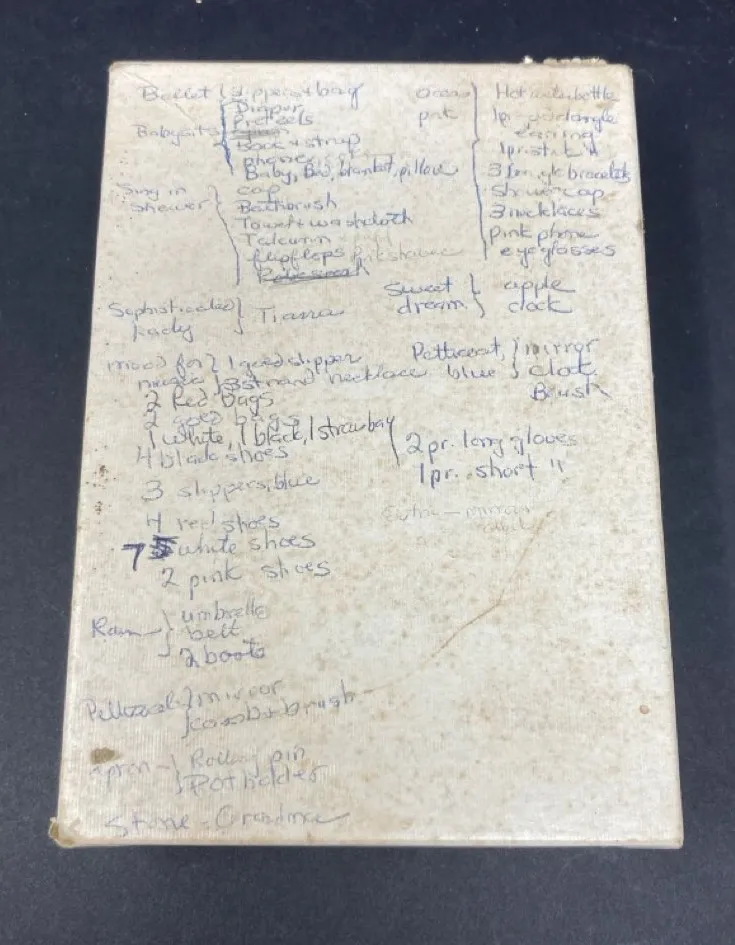 Ballet { slippers + bag
Diaper
Pretzels
Babysits
Book + strap
phone
Baby, blanket, pillow
Sing in
shower
cap
Bathbrush
Towel + washcloth
Talcum
flipflops
Sophisticated
Lady } Tiara
mood for } 1 gold slipper
3 strand necklace
2 Red bags
2 gold bags
1 white, 1 black, 1 straw bag
4 black shoes
3 slippers, blue
4 red shoes
7 white shoes
2 pink shoes
Rain
umbrella
belt
2 boots
Petticoat } mirror
comb + brush
apron } Rolling pin
Pot holder
Grandma
pnk
Hot water bottle
1 pr. gold dangle
earring
1 pr.
3 bracelets
shower cap
3 necklaces
pink phone
eyeglasses
Sweet
dream } apple
clock
Petticoat,
blue } mirror
Brush
2 pr. long gloves
1 pr. short "
mirror